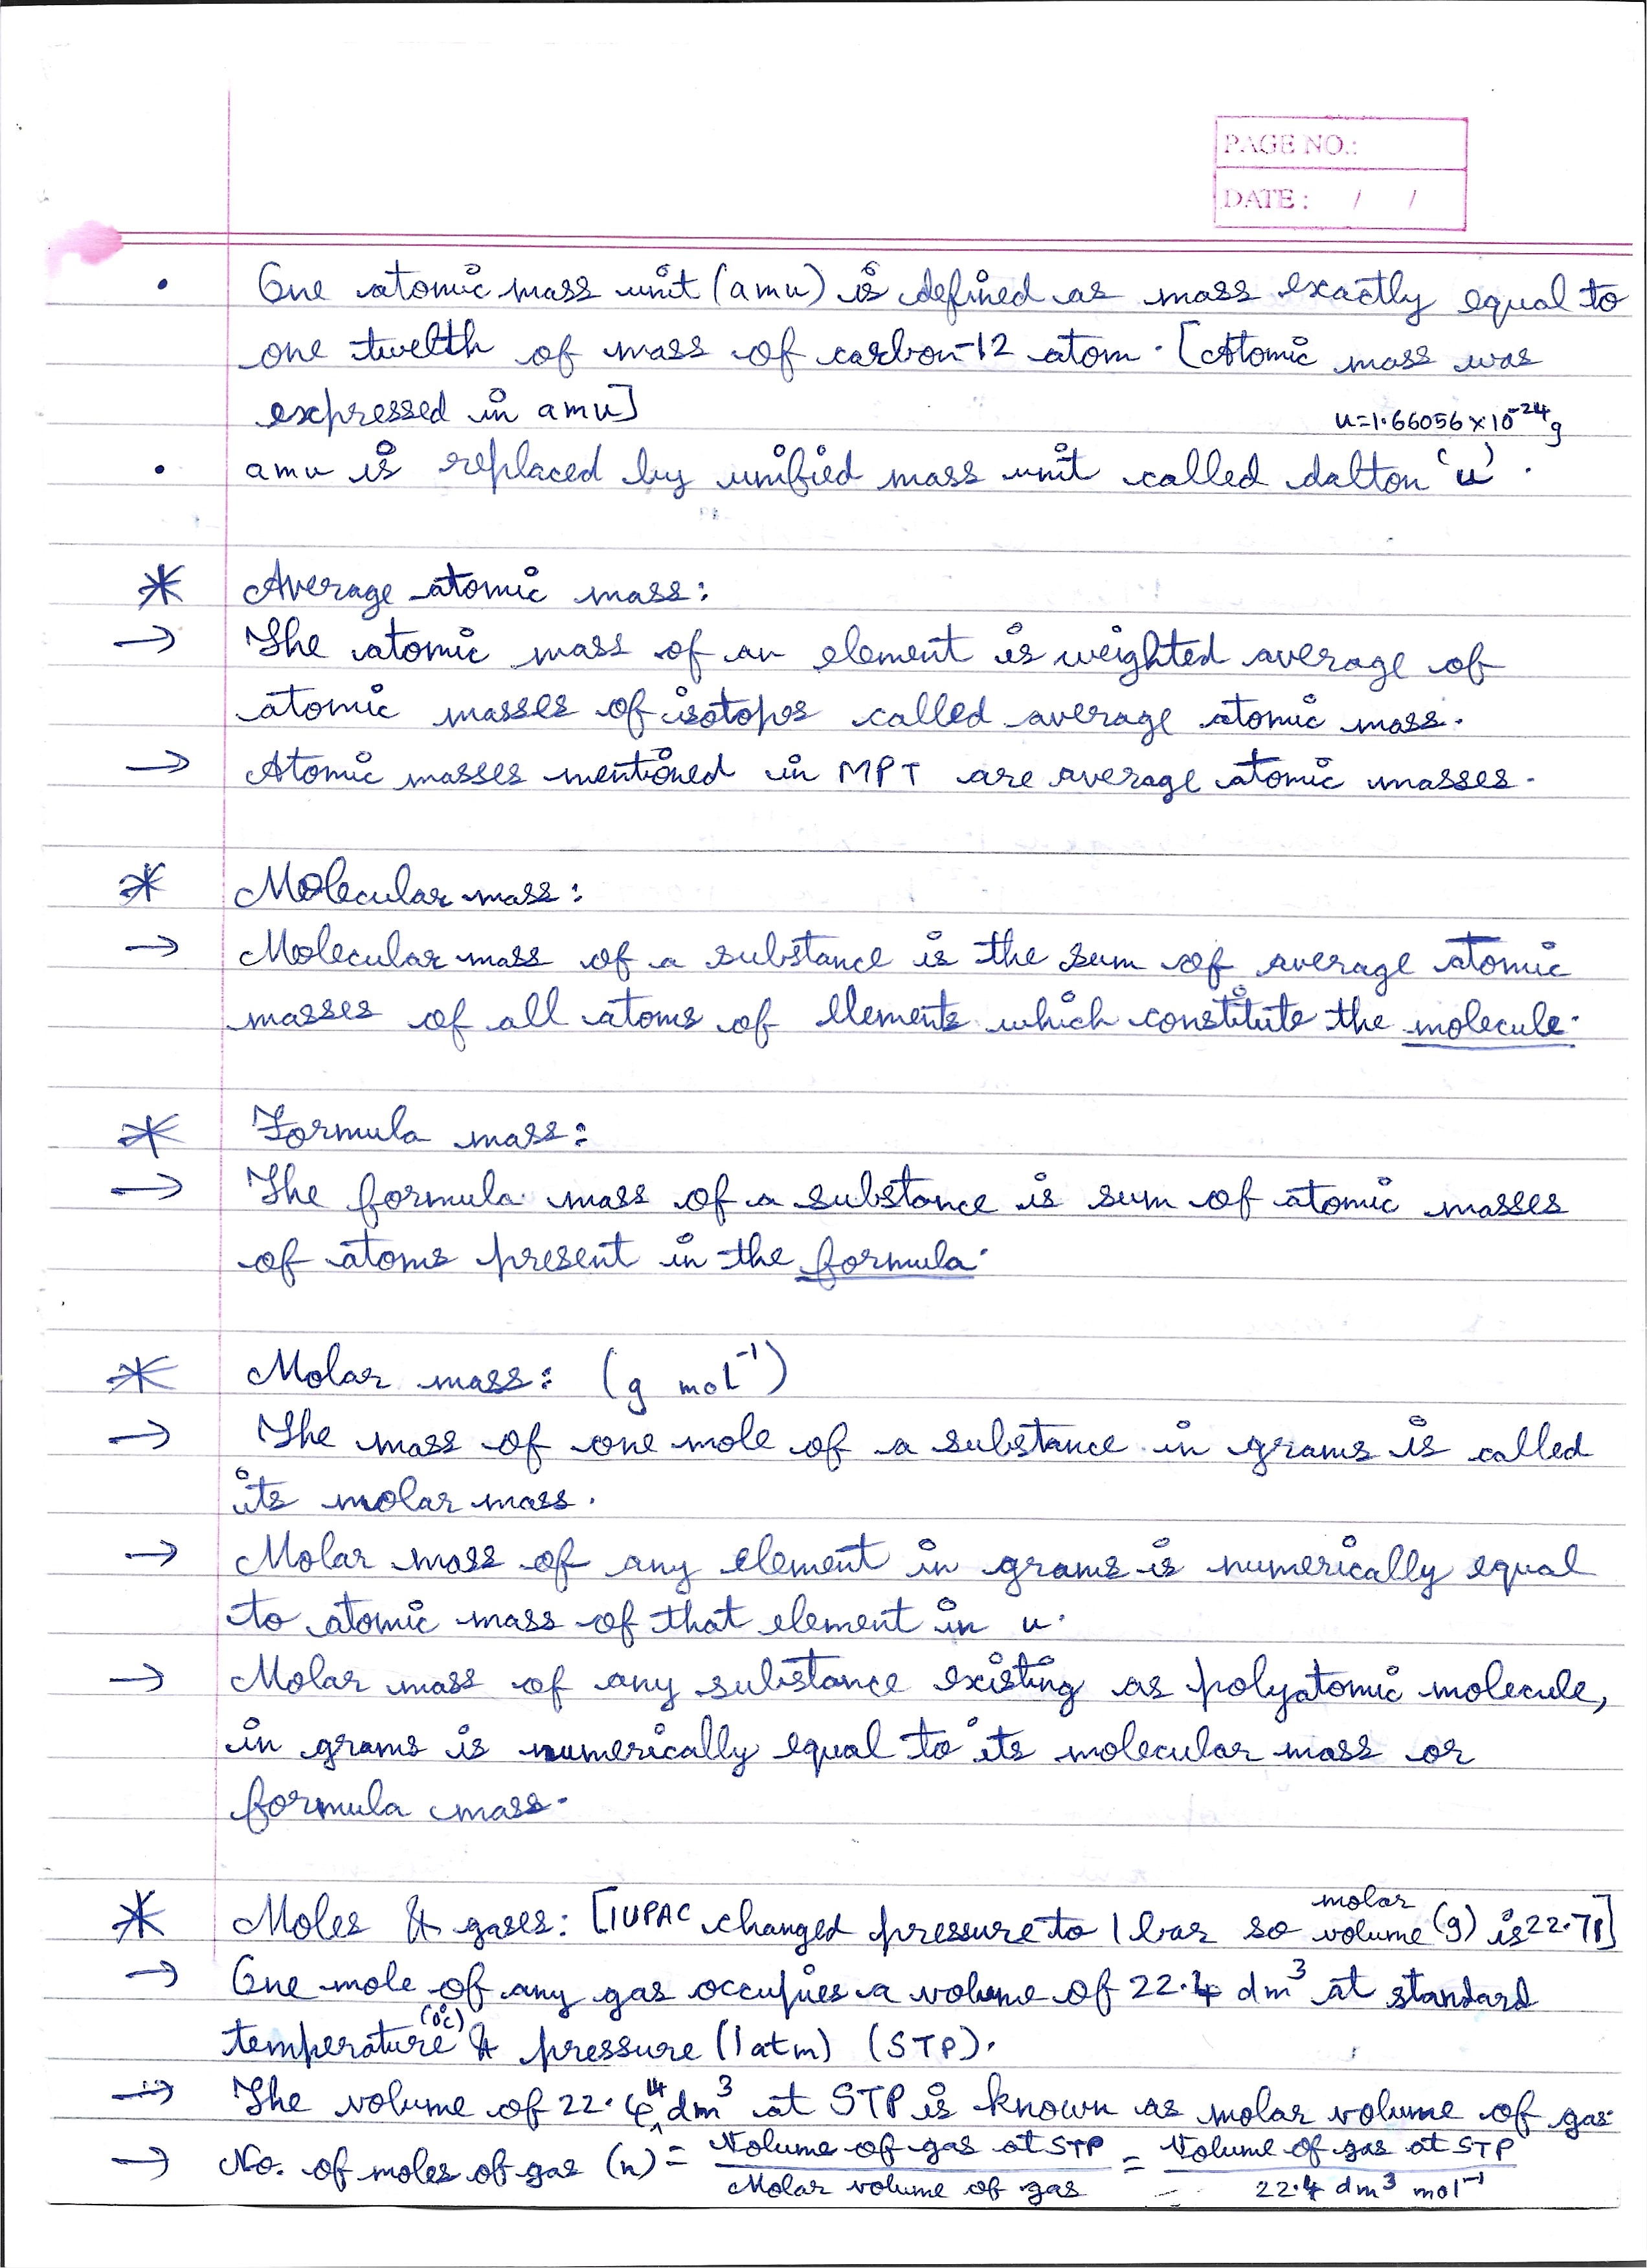 PAGE NO.:
DATE: / /
• One atomic mass unit (amu) is defined as mass exactly equal to
one twelth of mass of carbon-12 atom. [Atomic mass was
expressed in amu]
u=1.66056×10⁻²⁴g
• amu is replaced by unified mass unit called dalton 'u'.
* Average atomic mass:
→ The atomic mass of an element is weighted average of
atomic masses of isotopes called average atomic mass.
→ Atomic masses mentioned in MPT are average atomic masses.
* Molecular mass:
→ Molecular mass of a substance is the sum of average atomic
masses of all atoms of elements which constitute the molecule.
* Formula mass:
→ The formula mass of a substance is sum of atomic masses
of atoms present in the formula.
* Molar mass: (g mol⁻¹)
→ The mass of one mole of a substance in grams is called
its molar mass.
→ Molar mass of any element in grams is numerically equal
to atomic mass of that element in u.
→ Molar mass of any substance existing as polyatomic molecule,
in grams is numerically equal to its molecular mass or
formula mass.
* Moles & gases: [IUPAC changed pressure to 1 bar so molar volume (g) is 22.71]
→ One mole of any gas occupies a volume of 22.4 dm³ at standard
temperature (0°C) & pressure (1 atm) (STP).
→ The volume of 22.414 dm³ at STP is known as molar volume of gas.
→ No. of moles of gas (n) = Volume of gas at STP / Molar volume of gas = Volume of gas at STP / 22.4 dm³ mol⁻¹